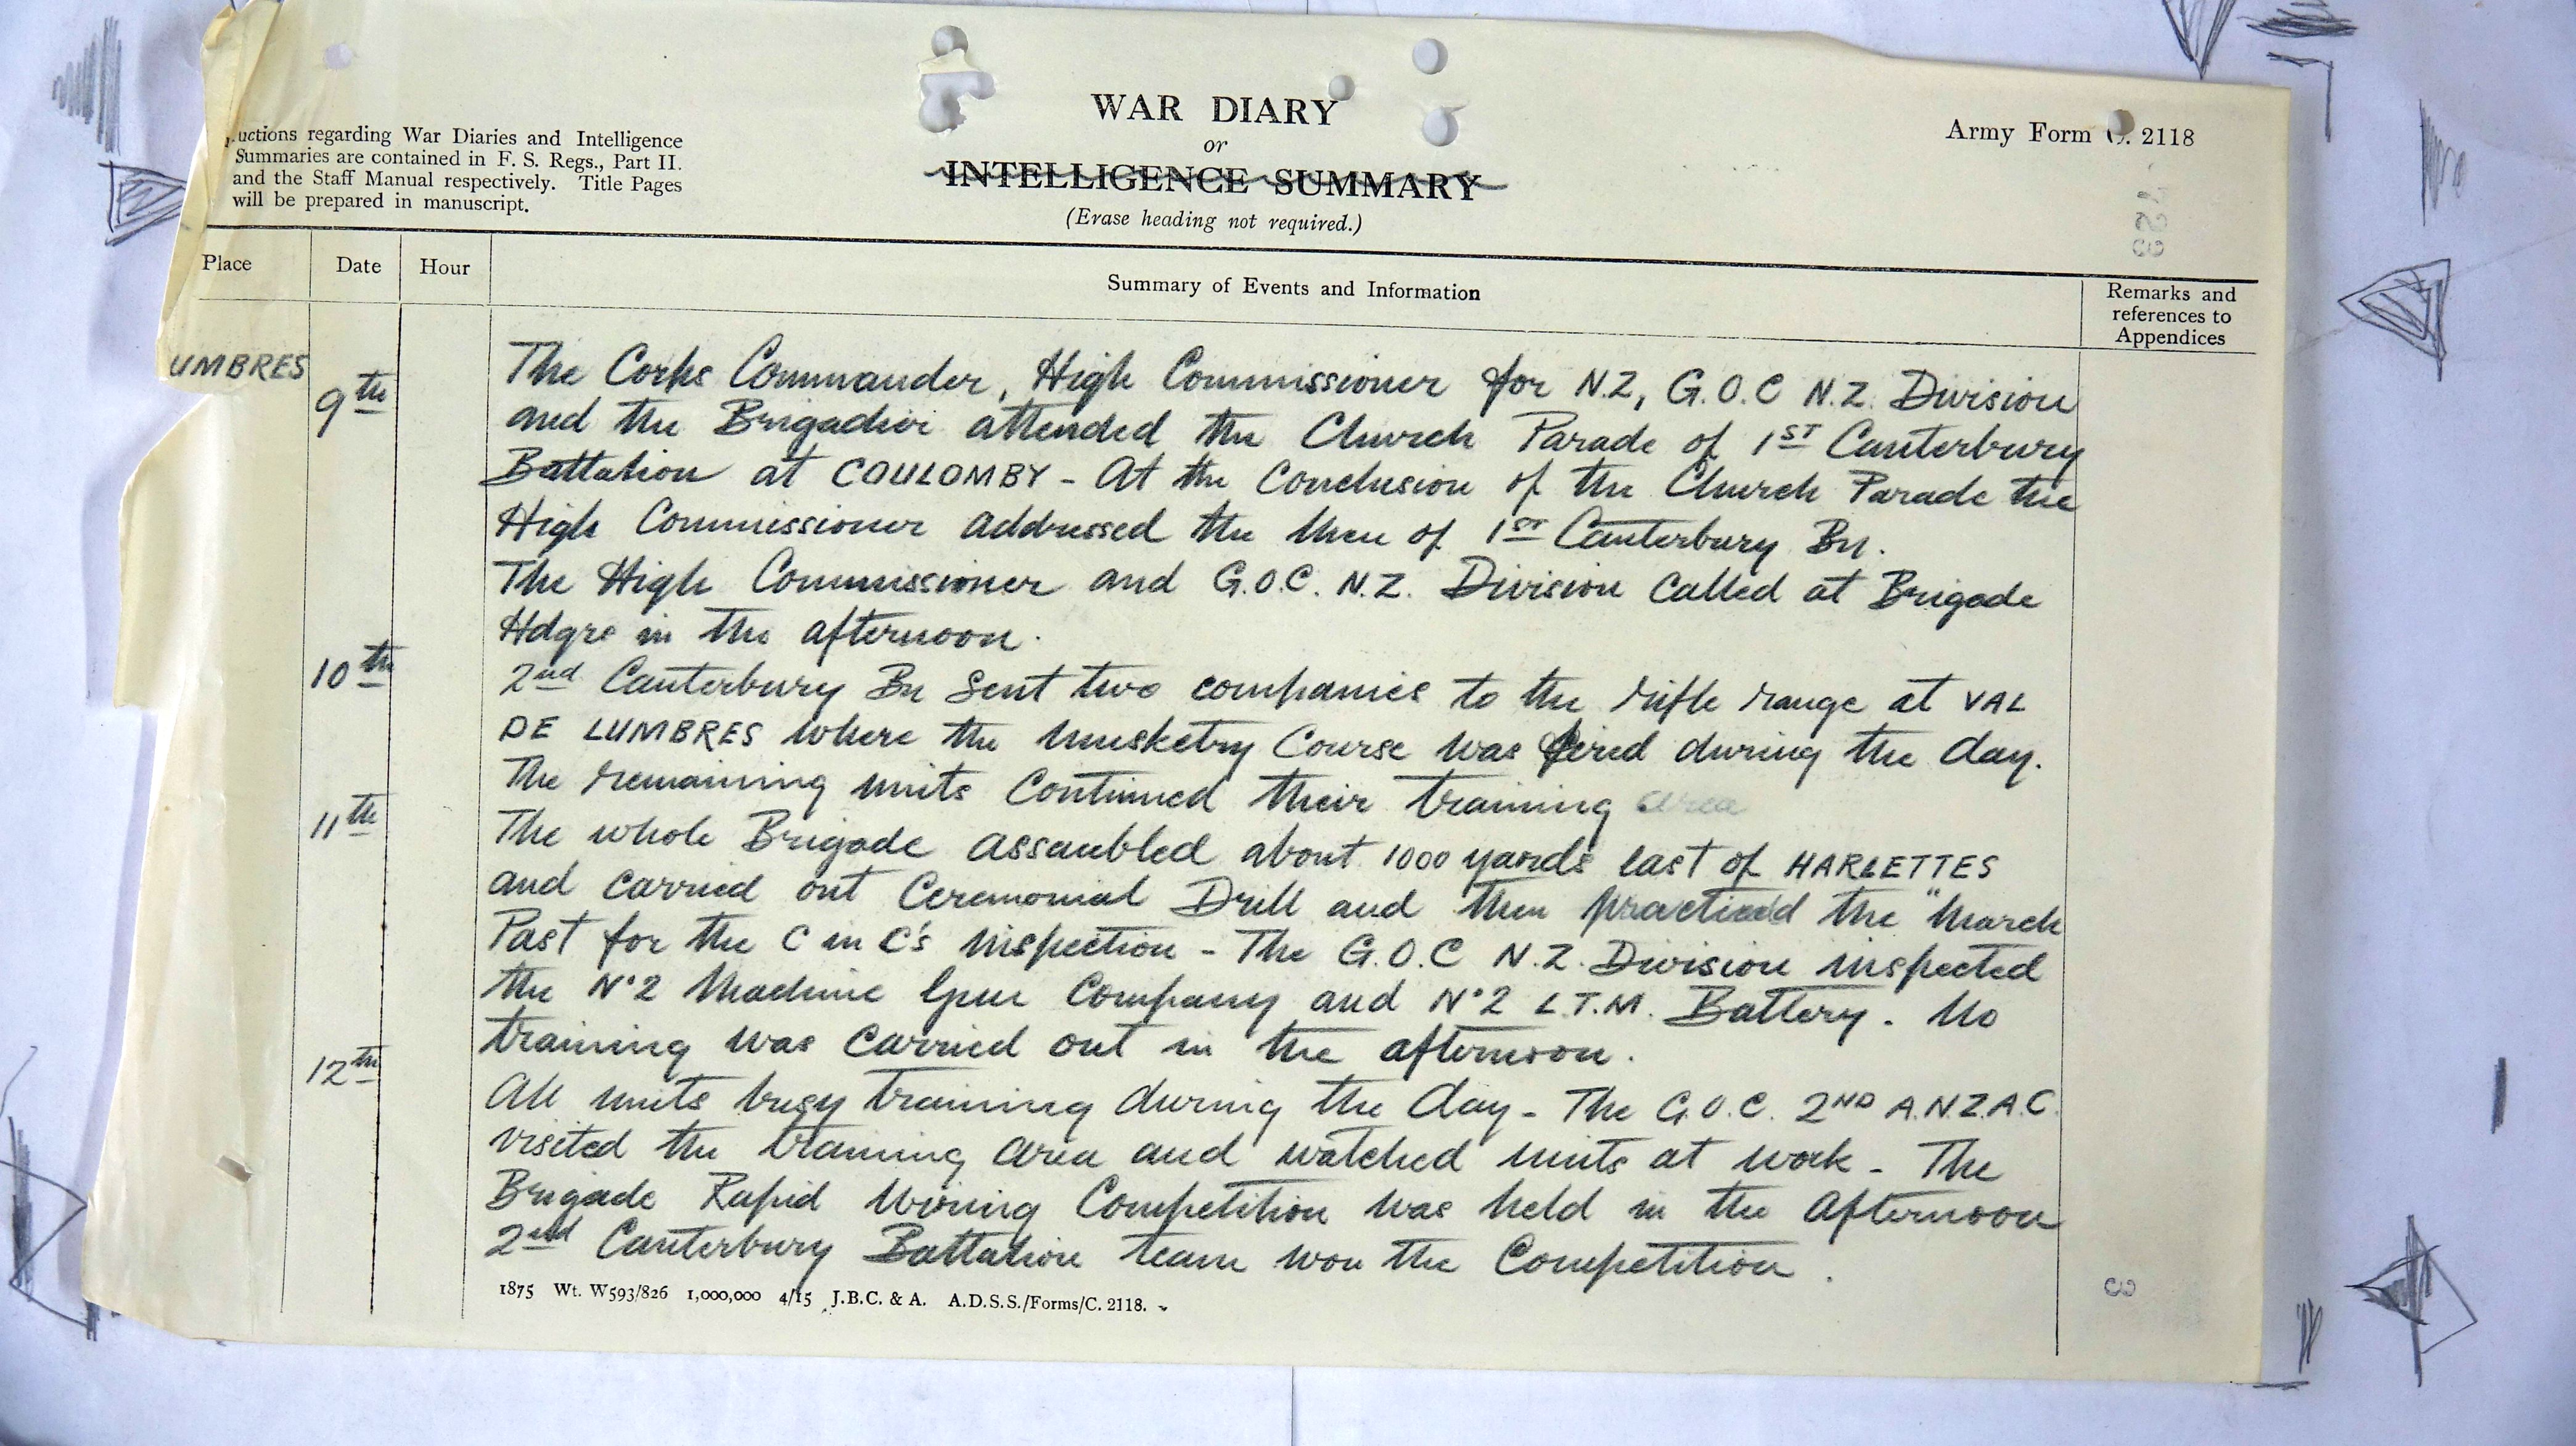 WAR DIARY
or
INTELLIGENCE SUMMARY
(Erase heading not required.)
Army Form C. 2118
uctions regarding War Diaries and Intelligence
Summaries are contained in F. S. Regs., Part II.
and the Staff Manual respectively. Title Pages
will be prepared in manuscript.
Place Date Hour Summary of Events and Information Remarks and
references to
Appendices
UMBRES 9th The Corps Commander, High Commissioner for N.Z, G.O.C N.Z. Division
and the Brigadier attended the Church Parade of 1ST Canterbury
Battalion at COULOMBY - At the Conclusion of the Church Parade the
High Commissioner addressed the Men of 1ST Canterbury Bn.
The High Commissioner and G.O.C. N.Z. Division called at Brigade
Hdqrs in the afternoon.
10th 2nd Canterbury Bn sent two companies to the rifle range at VAL
DE LUMBRES where the Musketry Course was fired during the day.
The remaining units continued their training area
11th The whole Brigade assembled about 1000 yards East of HARLETTES
and carried out Ceremonial Drill and then practiced the "March
Past for the C in C's inspection - The G.O.C N.Z. Division inspected
the No2 Machine Gun Company and No2 L.T.M. Battery. No
training was carried out in the afternoon.
12th All units busy training during the day - The G.O.C. 2ND A.N.Z.A.C.
visited the training area and watched units at work - The
Brigade Rapid Wiring Competition was held in the afternoon
2nd Canterbury Battalion team won the Competition.
1875 Wt. W593/826 1,000,000 4/15 J.B.C. & A. A.D.S.S./Forms/C. 2118.